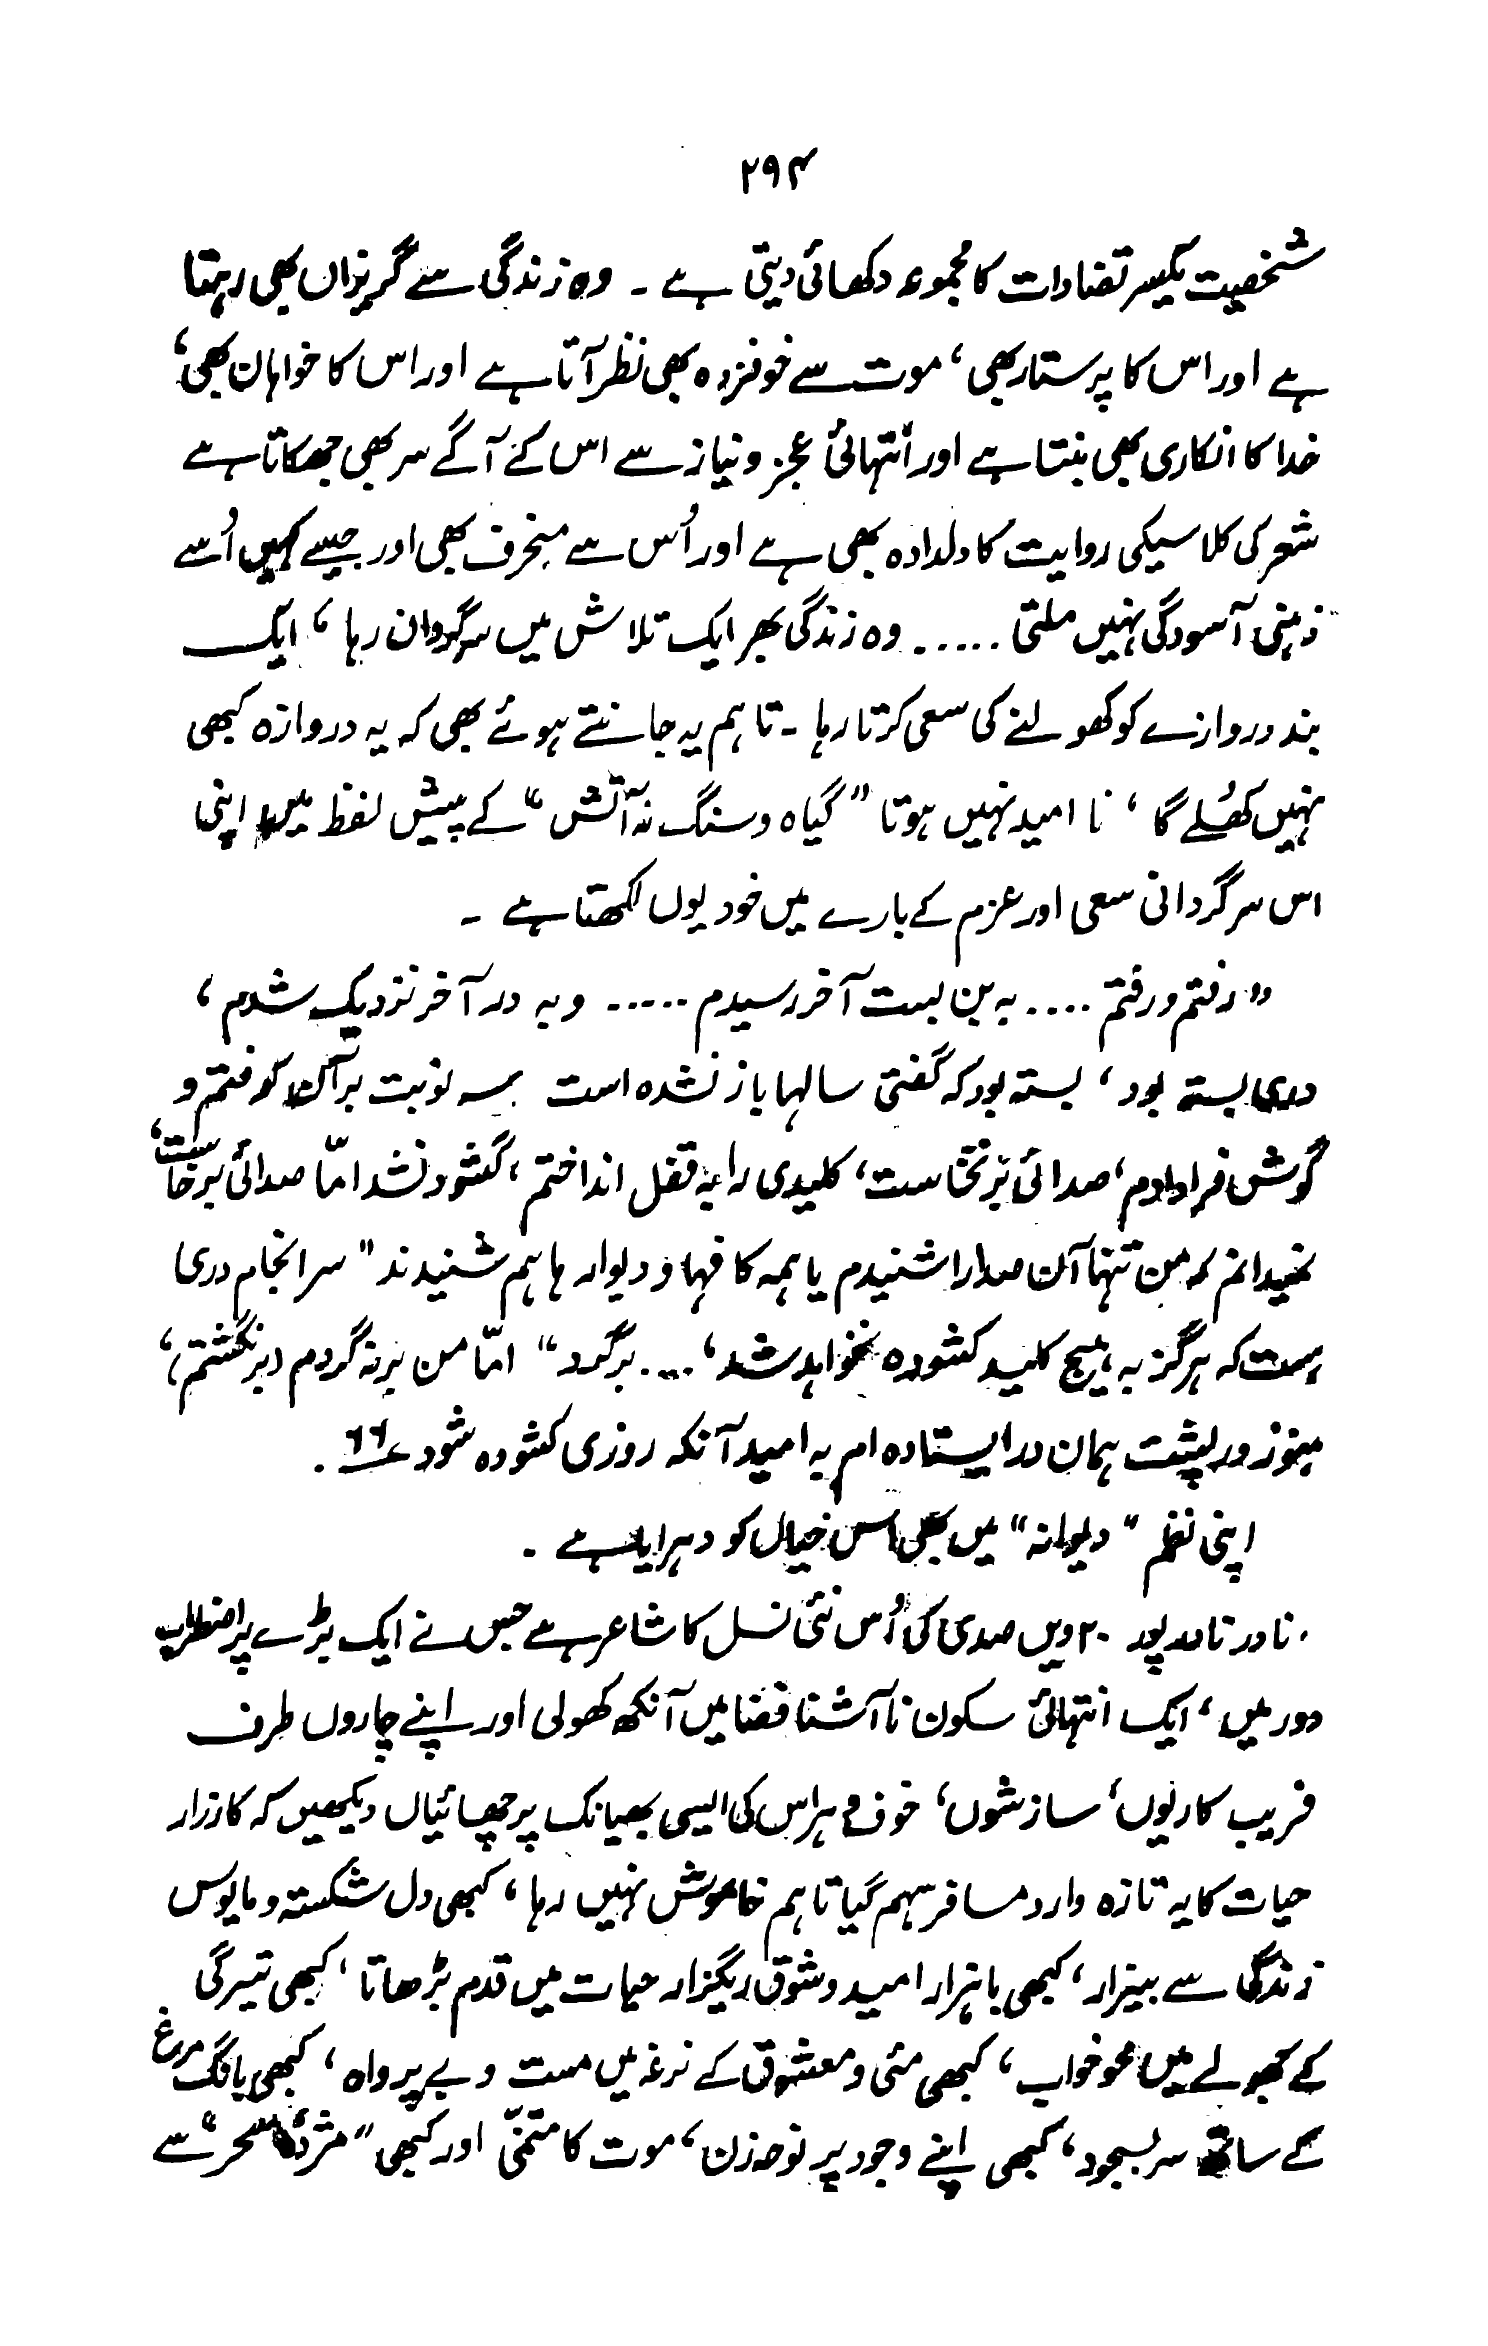 ۲۹۴
شخصیت یکسر تضادات کا مجموعہ دکھائی دیتی ہے ۔ وہ زندگی سے گریزاں بھی رہتا
ہے اور اس کا پرستار بھی ، موت سے خوفزدہ بھی نظر آتا ہے اور اس کا خواہان بھی ،
خدا کا انکاری بھی بنتا ہے اور انتہائی عجز و نیاز سے اس کے آگے سر بھی جھکاتا ہے
شعر کی کلاسیکی روایت کا دلدادہ بھی ہے اور اُس سے منحرف بھی اور جیسے کہیں اُسے
ذہنی آسودگی نہیں ملتی ..... وہ زندگی بھر ایک تلاش میں سرگردان رہا ، ایک
بند دروازے کو کھولنے کی سعی کرتا رہا ۔ تاہم یہ جانتے ہوئے بھی کہ یہ دروازہ کبھی
نہیں کھُلے گا ، نا امید نہیں ہوتا " گیاہ و سنگ نہ آتش " کے پیش لفظ میں اپنی
اس سرگردانی سعی اور عزم کے بارے میں خود یوں لکھتا ہے ۔
" رفتم و رفتم .... به بن بست آخر رسیدم ..... و به در آخر نزدیک شدم ،
دری بسته بود ، بسته بود که گفتی سالها باز نشده است سه نوبت بر آن کوفتم و
گوش فرا دادم ، صدائی برنخاست ، کلیدی را به قفل انداختم ، گشود نشد امّا صدائی برخاست ،
نمیدانم که من تنها آن صدا را شنیدم یا همه کافها و دیوار ها هم شنیدند " سرانجام دری
ہست که هرگز به هیچ کلید کشوده نخواهد شد ، .... برگرد " امّا من برنه گردم (برنگشتم) ،
هنوز در پشت همان در ایستاده ام به امید آنکه روزی کشوده شود ؏۶۶ .
اپنی نظم " دیوانہ " میں بھی اس خیال کو دہرایا ہے ۔
نادر نادرپور ۲۰ ویں صدی کی اُس نئی نسل کا شاعر ہے جس نے ایک بڑے پر اضطراب
دور میں ، ایک انتہائی سکون نا آشنا فضا میں آنکھ کھولی اور اپنے چاروں طرف
فریب کاریوں ، سازشوں ، خوف و ہراس کی ایسی بھیانک پرچھائیاں دیکھیں کہ کارزار
حیات کا یہ تازہ وارد مسافر سہم گیا تاہم خاموش نہیں رہا ، کبھی دل شکستہ و مایوس
زندگی سے بیزار ، کبھی باہزار امید و شوق ریگزار حیات میں قدم بڑھاتا ، کبھی تیرگی
کے جھولے میں محو خواب ، کبھی مئی و معشوق کے نرغہ میں مست و بے پرواہ ، کبھی بانگ مرغ
کے ساتھ سر بسجود ، کبھی اپنے وجود پر نوحہ زن ، موت کا متمنّی اور کبھی " مژدۂ سحر " سے